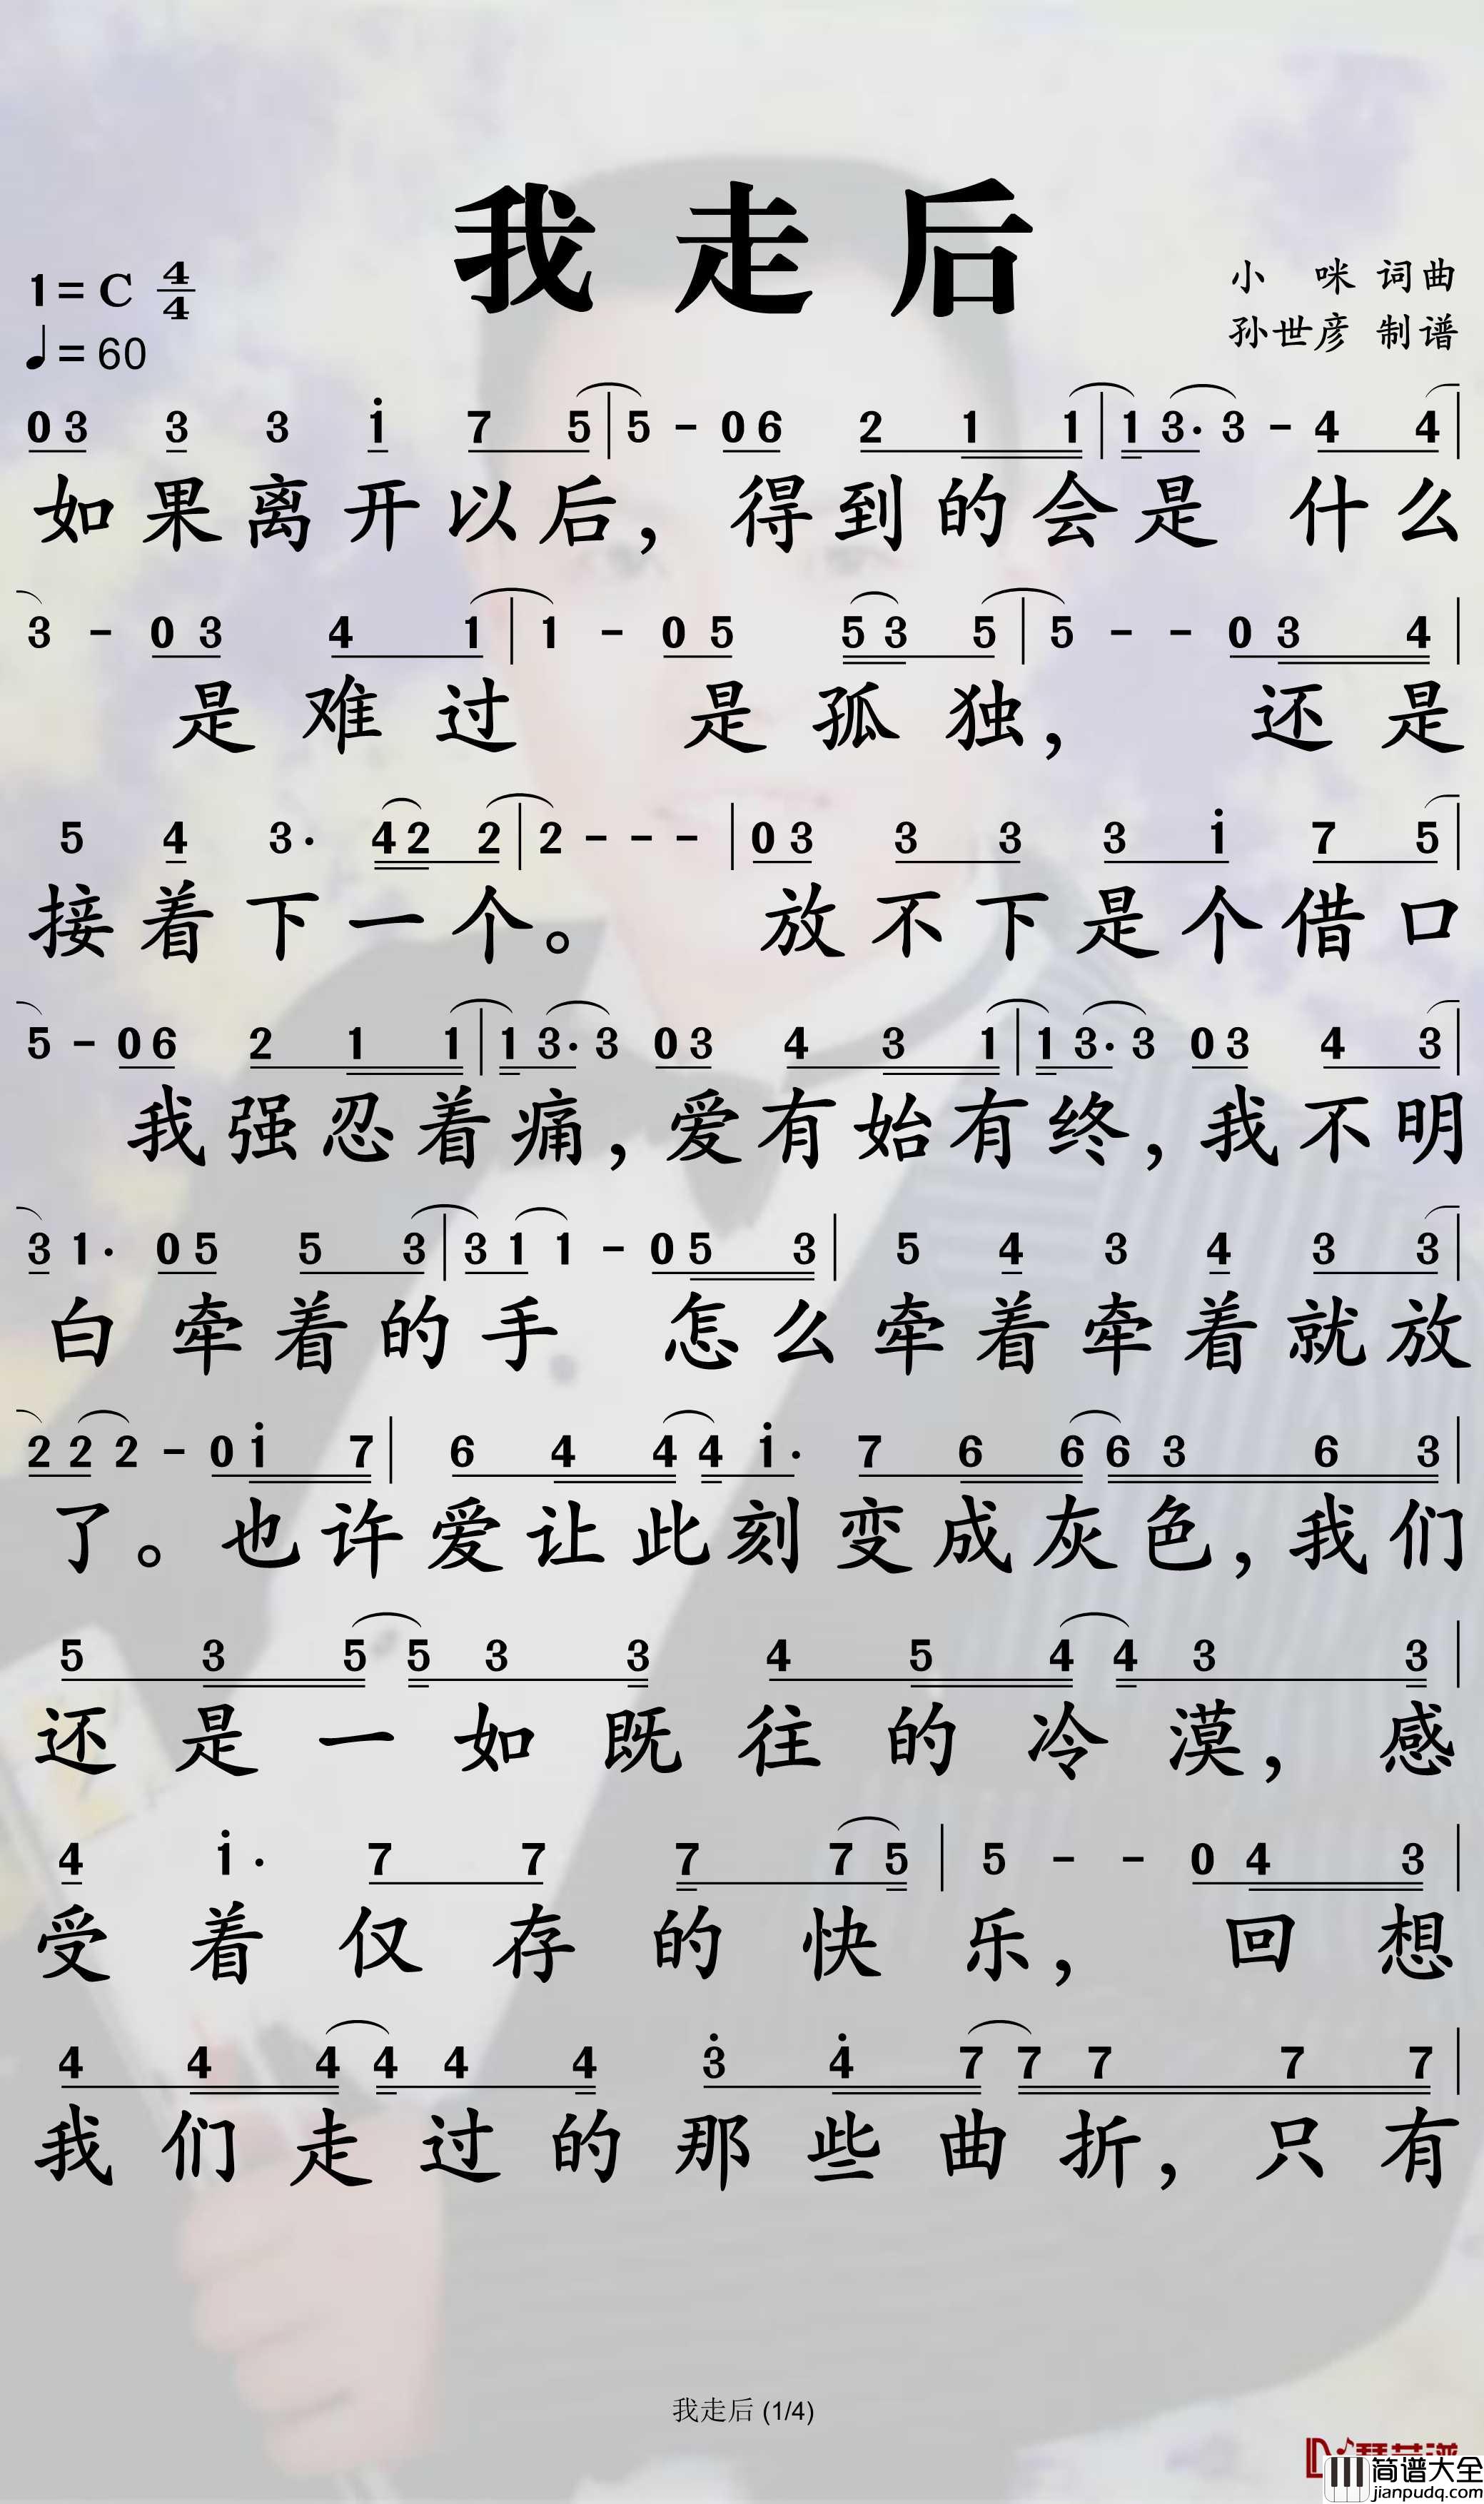 我走后
1=C 4/4
♩=60
小 咪 词曲
孙世彦 制谱
03 3 3 i 7 5|5 - 06 2 1 1|1 3· 3 - 4 4|
如果离开以后，得到的会是 什么
3 - 0 3 4 1|1 - 0 5 5 3 5|5 - - 0 3 4|
是难过 是孤独， 还是
5 4 3· 42 2|2 - - -|03 3 3 3 i 7 5|
接着下一个。 放不下是个借口
5 - 06 2 1 1|1 3· 3 03 4 3 1|1 3· 3 03 4 3|
我强忍着痛，爱有始有终，我不明
3 1· 05 5 3|3 1 1 - 05 3|5 4 3 4 3 3|
白牵着的手 怎么牵着牵着就放
2 2 2 - 0 i 7|6 4 4 4 i· 7 6 6 6 3 6 3|
了。也许爱让此刻变成灰色，我们
5 3 5 5 3 3 4 5 4 4 3 3|
还是一如既往的冷漠，感
4 i· 7 7 7 7 5|5 - - 0 4 3|
受着仅存的快乐， 回想
4 4 4 4 4 4 3̇ 4̇ 7 7 7 7 7|
我们走过的那些曲折，只有
我走后 (1/4)
简谱大全
jianpudq.com